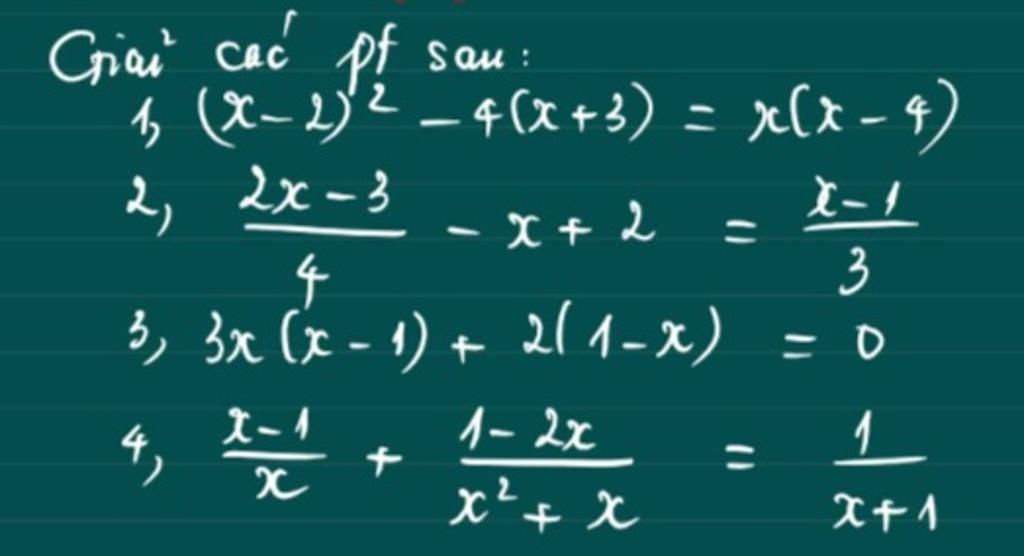 Giải các pt sau:
1, (x-2)² - 4(x+3) = x(x-4)
2, (2x-3)/4 - x + 2 = (x-1)/3
3, 3x(x-1) + 2(1-x) = 0
4, (x-1)/x + (1-2x)/(x²+x) = 1/(x+1)